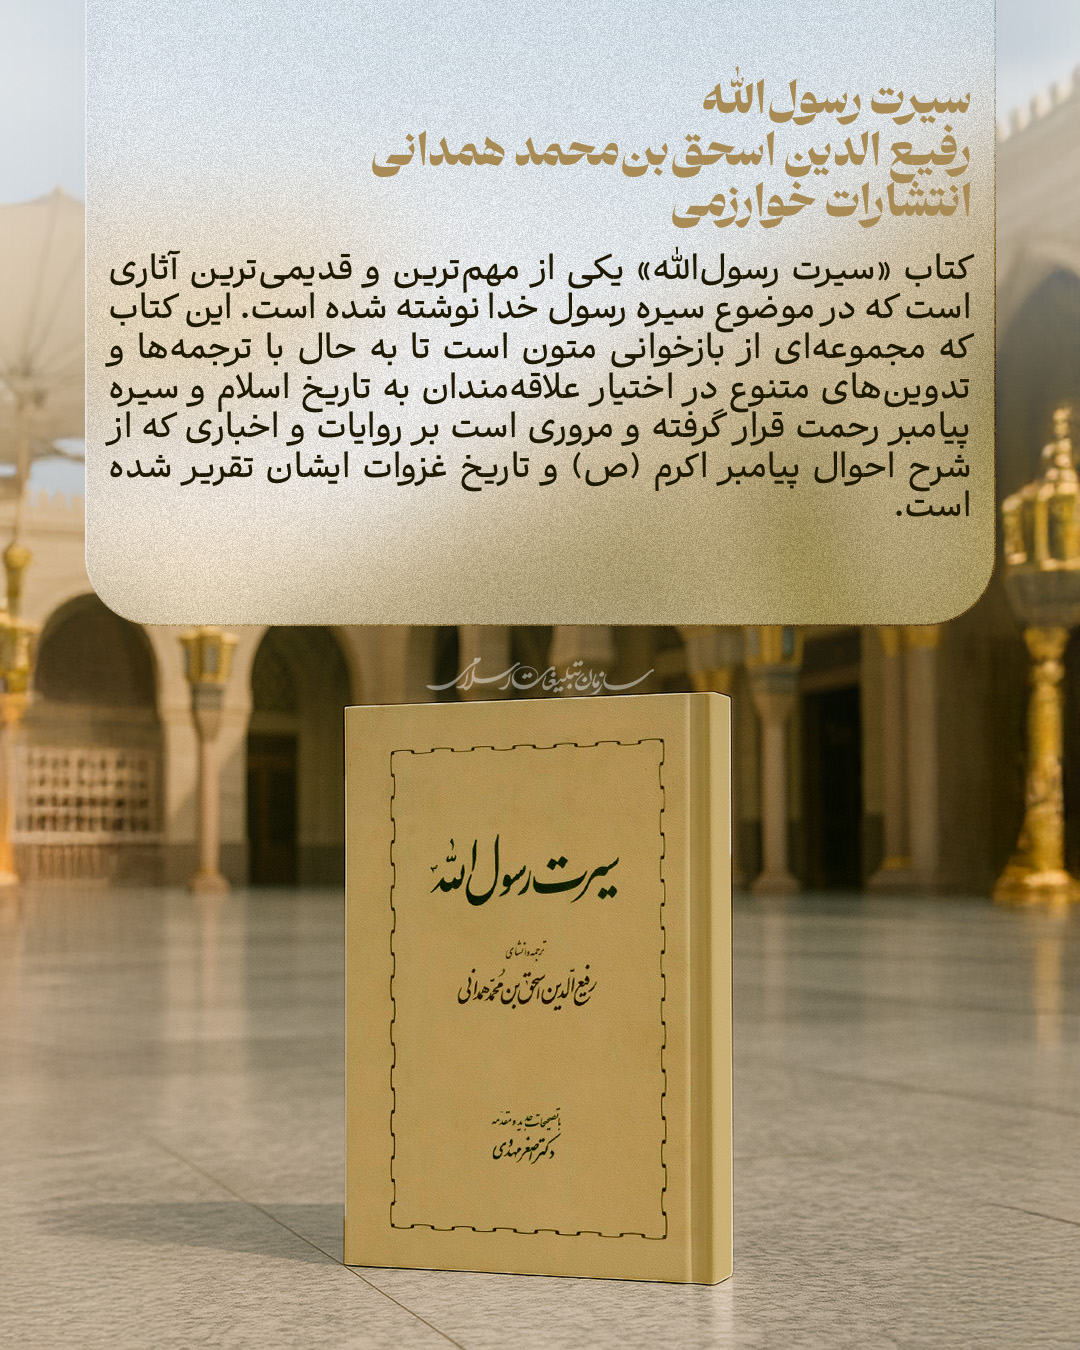 سیرت رسول‌الله
رفیع الدین اسحق‌بن‌محمد همدانی
انتشارات خوارزمی
کتاب «سیرت رسول‌الله» یکی از مهم‌ترین و قدیمی‌ترین آثاری
است که در موضوع سیره رسول خدا نوشته شده است. این کتاب
که مجموعه‌ای از بازخوانی متون است تا به حال با ترجمه‌ها و
تدوین‌های متنوع در اختیار علاقه‌مندان به تاریخ اسلام و سیره
پیامبر رحمت قرار گرفته و مروری است بر روایات و اخباری که از
شرح احوال پیامبر اکرم (ص) و تاریخ غزوات ایشان تقریر شده
است.
سازمان تبلیغات اسلامی
سیرت رسول الله
ترجمه و انشای
رفیع الدین اسحق بن محمد همدانی
با تصحیحات جدید و مقدمه
دکتر اصغر مهدوی